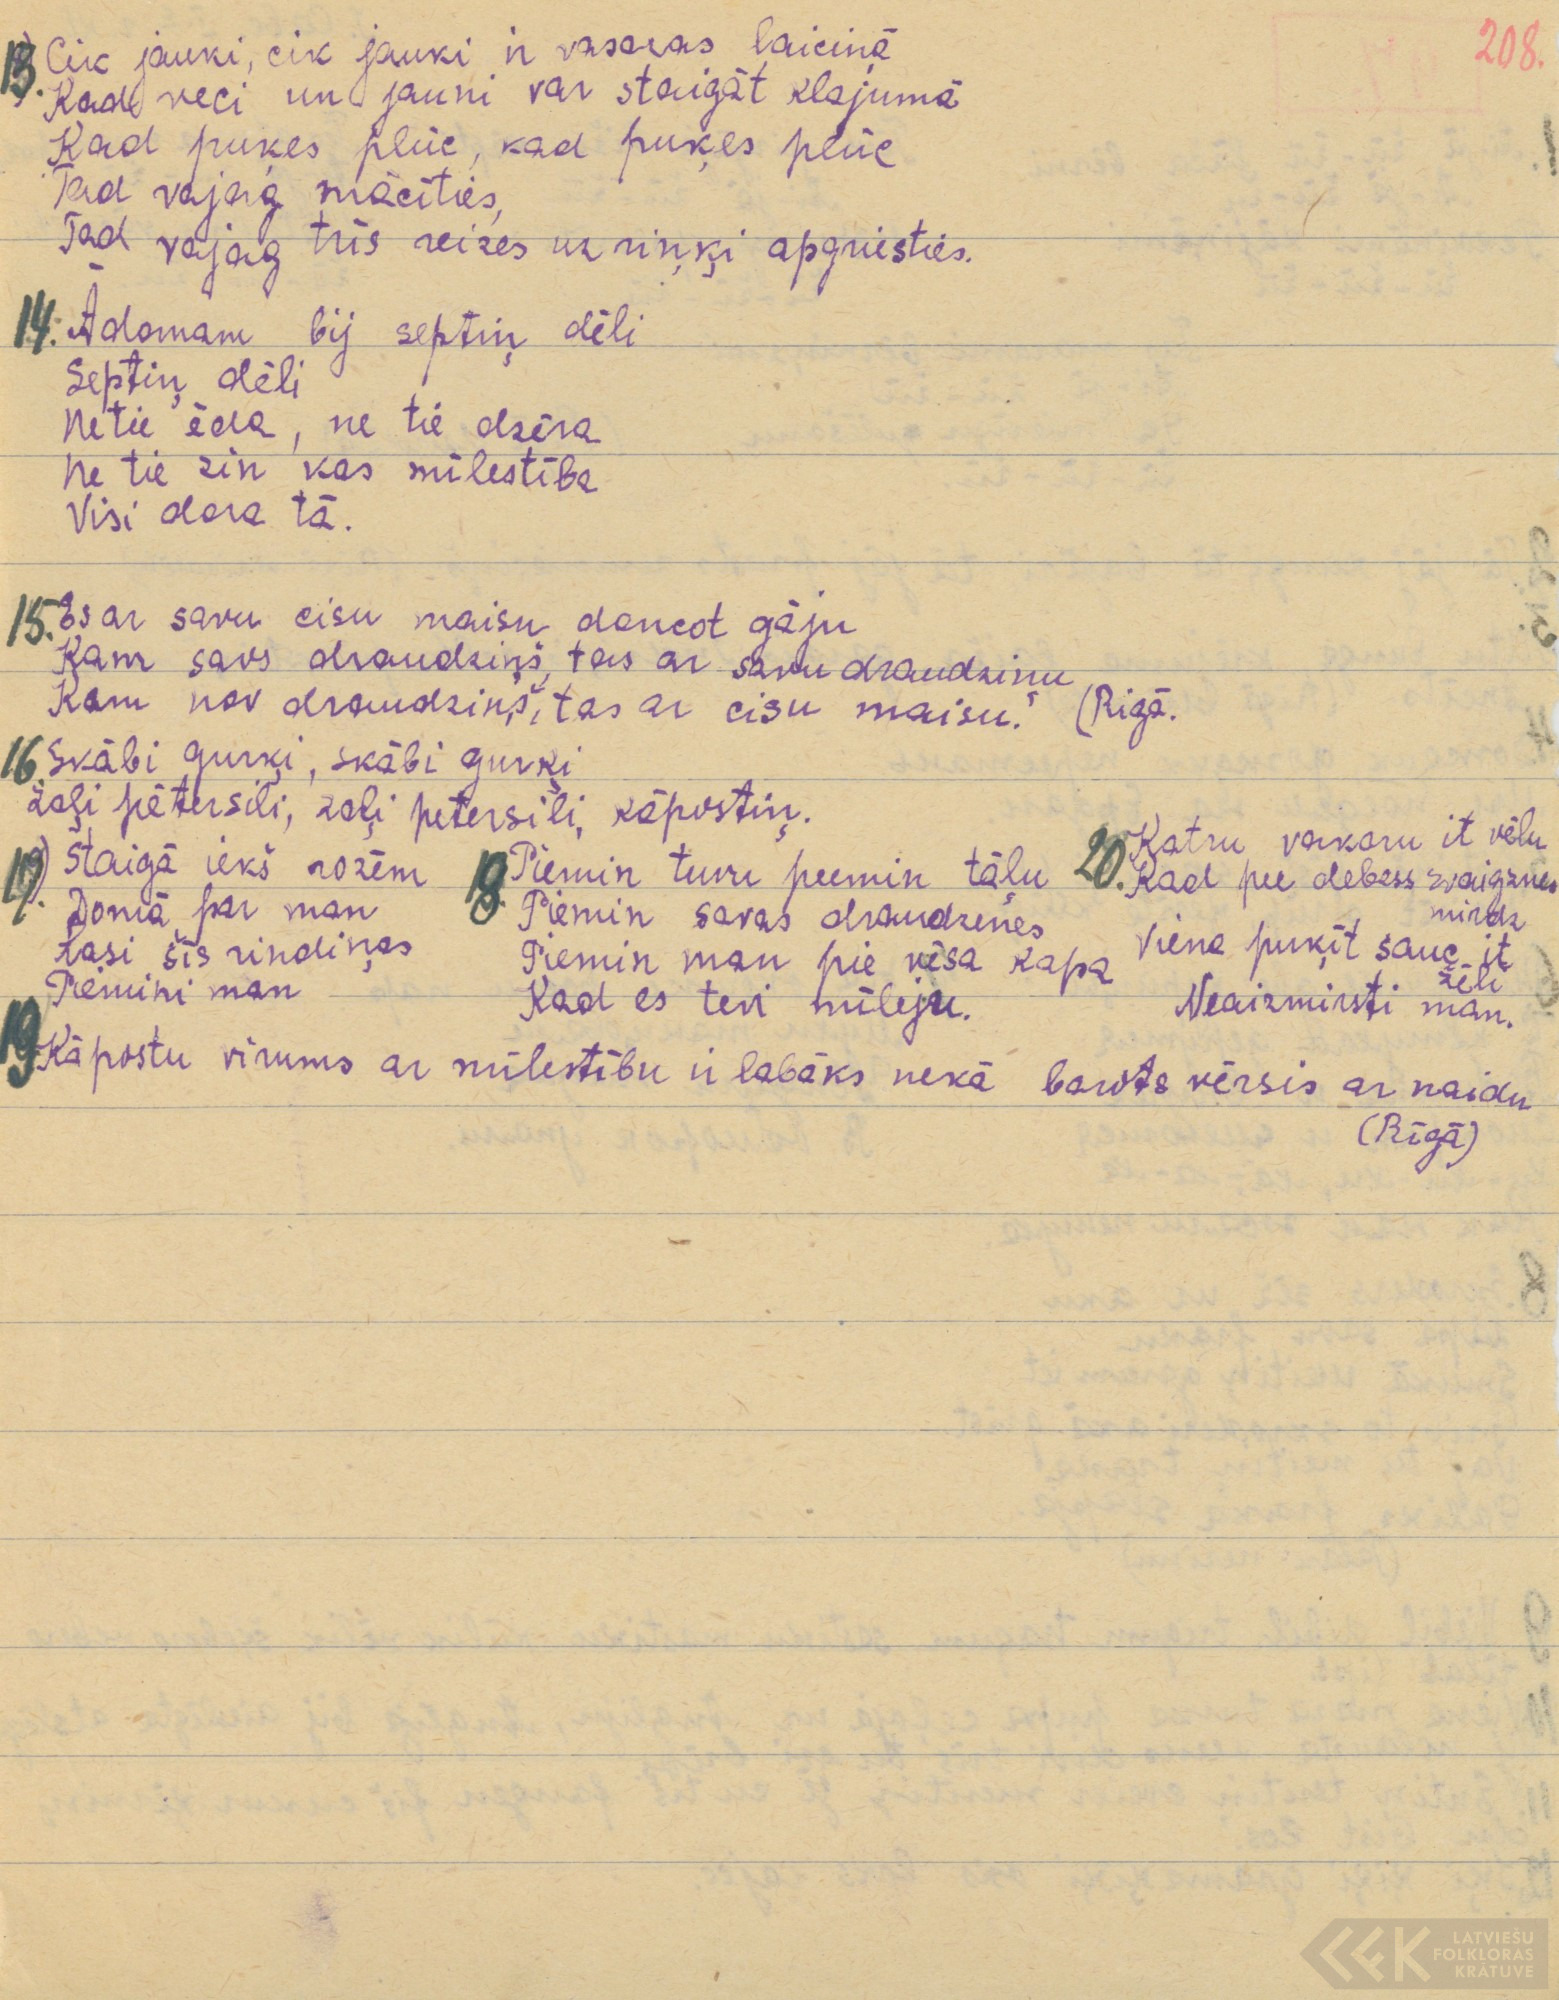 208.
13. Cik jauki, cik jauki ir vasaras laiciņā
Kad veci un jauni var staigāt klajumā
Kad puķes plūc, kad puķes plūc
Tad vajag mācīties,
Tad vajag trīs reizes uz riņķi apgriesties.
14. Ādamam bij septiņ dēli
Septiņ dēli
Ne tie ēda, ne tie dzēra
Ne tie zin kas mīlestība
Visi dara tā.
15. Es ar savu cisu maisu dancot gāju
Kam savs draudziņš, tas ar savu draudziņu
Kam nav draudziņš, tas ar cisu maisu. (Rīgā.
16. Skābi gurķi, skābi gurķi
zaļi pētersiļi, zaļi pētersiļi, kāpostiņ.
17. Staigā iekš rozēm
Domā par man
Lasi šīs rindiņas
Piemini man
18. Piemin tuvu peemin tāļu
Piemin savas draudzenes
Piemin man pie vēsa kapa
Kad es tevi mīlēju.
20. Katru vakaru it vēlu
Kad pee debess zvaigznes
mirdz
Viena puķīt sauc it
žēli
Neaizmirsti man.
19. Kāpostu vīrums ar mīlestību ir labāks nekā barots vērsis ar naidu
(Rīgā)
LATVIEŠU
FOLKLORAS
KRĀTUVE